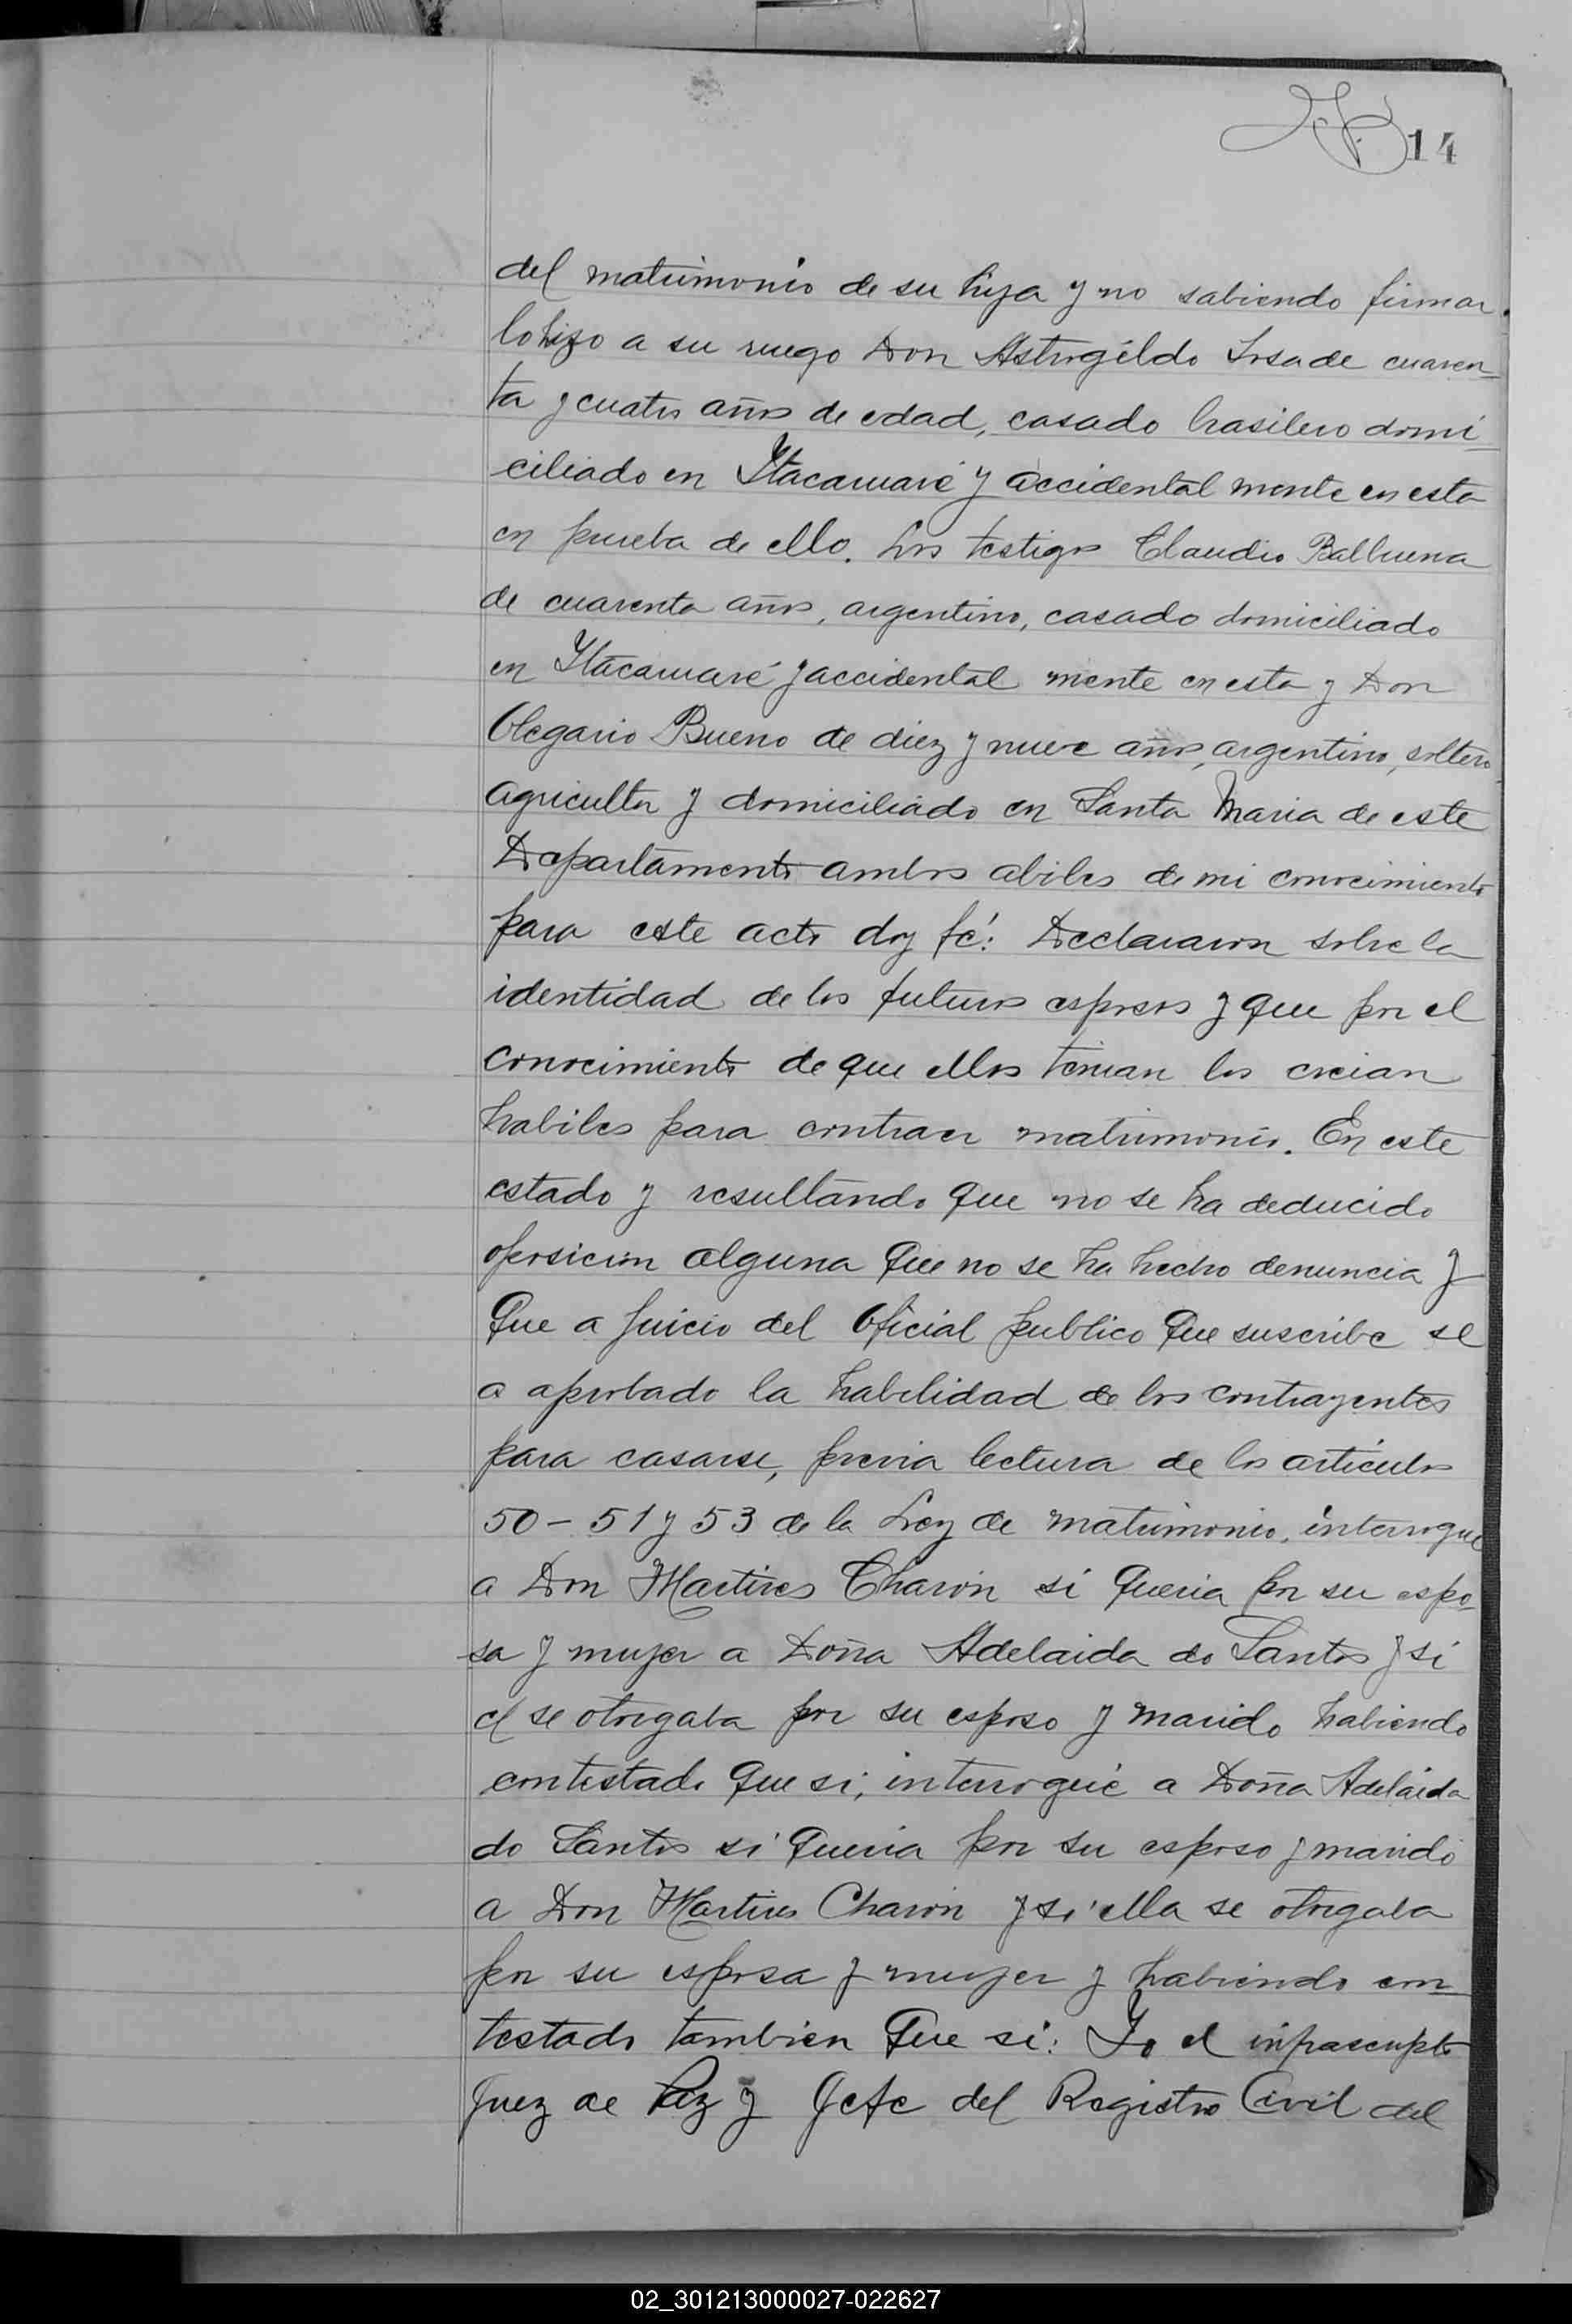 14
del matrimonio de su hija y no sabiendo firmar
lo hizo a su ruego Don Astrogildo Sosa de cuaren-
ta y cuatro años de edad, casado brasilero domi-
ciliado en Itacaruaré y accidental mente en esta
en prueba de ello. Los testigos Claudio Balbuena
de cuarenta años, argentino, casado domiciliado
en Itacaruaré y accidental mente en esta y Don
Olegario Bueno de diez y nueve años, argentino, soltero
agricultor y domiciliado en Santa Maria de este
Departamento ambos abiles de mi conocimiento
para este acto doy fé: Declararon sobre la
identidad de los futuros esposos y que por el
conocimiento de que ellos tenian los creian
habiles para contraer matrimonio. En este
estado y resultando que no se ha deducido
oposicion alguna que no se ha hecho denuncia y
que a juicio del Oficial publico que suscribe se
a aprobado la habilidad de los contrayentes
para casarse, previa lectura de los articulos
50 - 51 y 53 de la Ley de matrimonio, interrogue
a Don Martires Charon si queria por su espo-
sa y mujer a Doña Adelaida do Santos y si
el se otorgaba por su esposo y marido habiendo
contestado que si, interrogué a Doña Adelaida
do Santos si queria por su esposo y marido
a Don Martires Charon y si ella se otorgaba
por su esposa y mujer y habiendo con-
testado tambien que si: Yo el infrascripto
Juez de Paz y Jefe del Registro Civil del
02_301213000027-022627